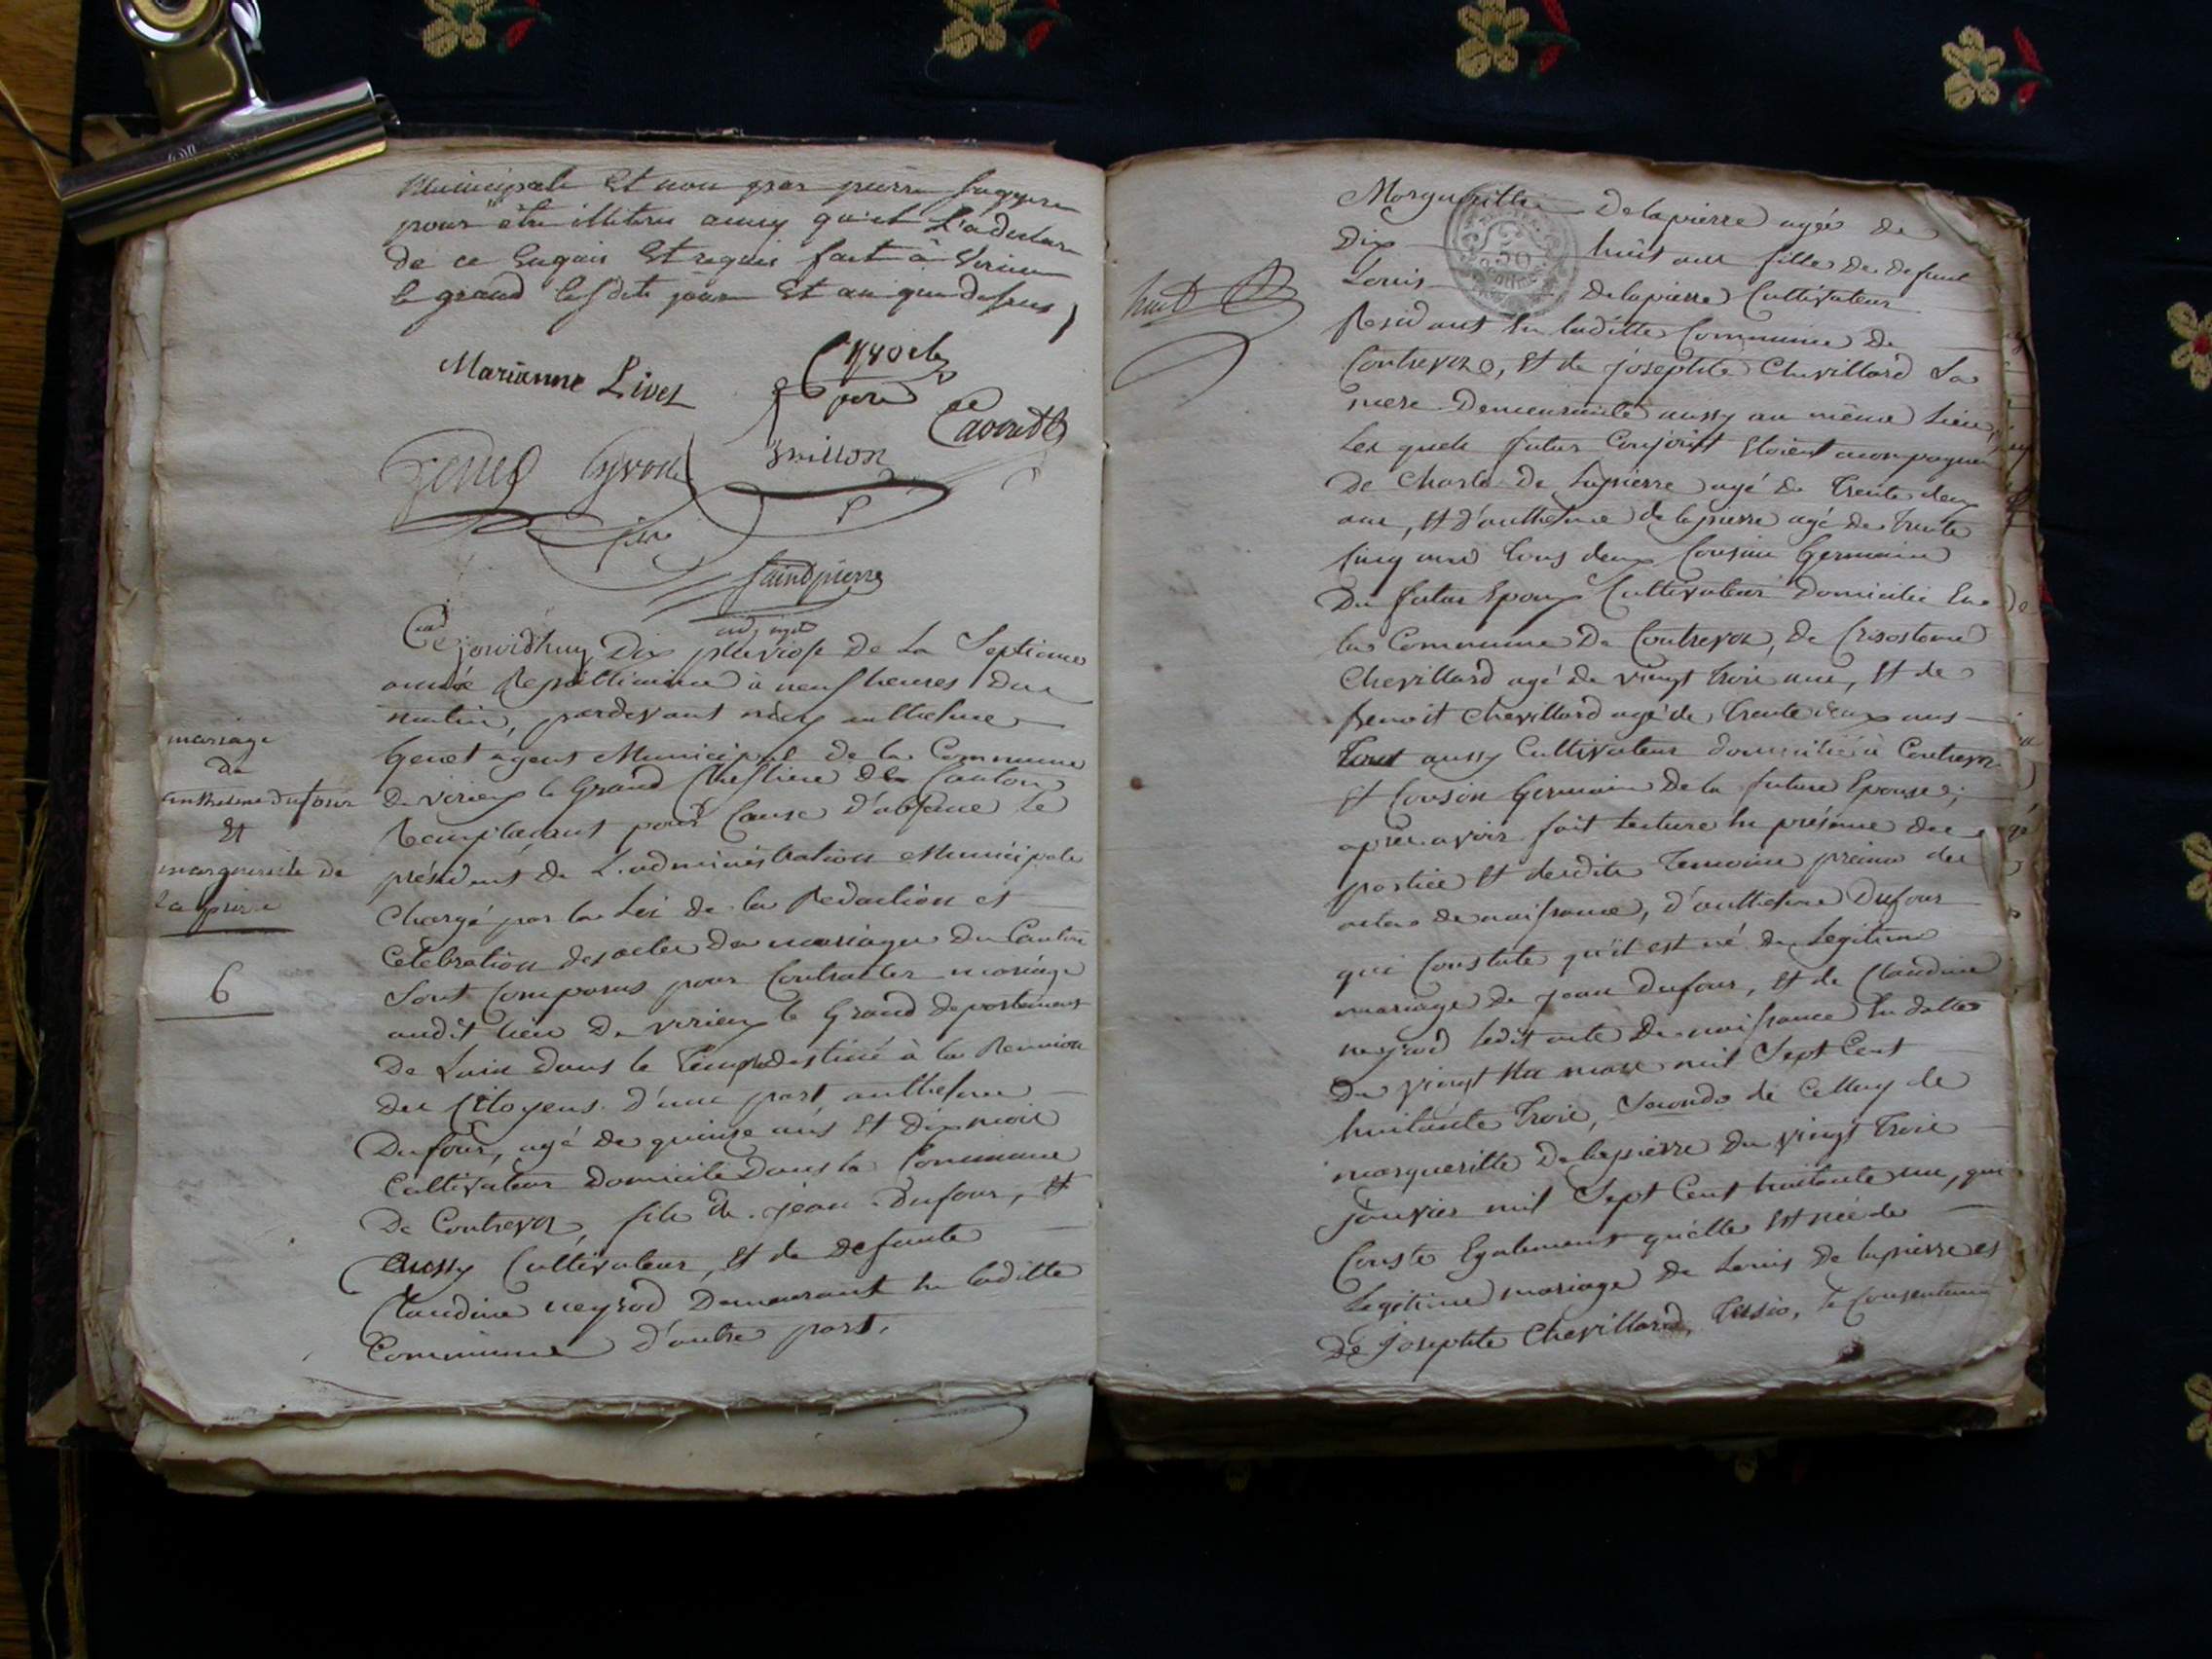 Municipale Et non par pierre
pour être illiteré ainsy qu'il L'a declaré
de ce Enquis Et requis fait à Virieu
le grand lesdits jour Et an que dessus
Marianne Livet
père
Cavard
Genet
saint pierre
Cejourd'huy Dix pluviose de La Septieme
année Republicaine à neuf heures du
matin, pardevant nous anthelme
Genet agent Municipal de la Commune
de virieux le Grand Cheflieu de Canton
Remplacant pour Cause d'absence le
président de L'administration Municipale
Chargé par la Loi de la Redaction et
Célébration des actes de mariages du Canton
Sont Comparus pour Contracter mariage
audit lieu de virieux le Grand departement
De Lain dans le Temple destiné à la Reunion
des Citoyens. d'une part anthelme
Dufour, agé de quinze ans Et Dix mois
Cultivateur Domicilié Dans la Commune
De Contrevoz, fils de jean Dufour, Et
Aussy Cultivateur, Et de defunte
Claudine neyrod Demeurant En laditte
Commune D'autre part.
mariage
de
anthelme Dufour
Et
marguerite de
La pierre
6
huit
Margueritte Delapierre agée de
Dix huit ans fille de defunt
Louis Delapierre Cultivateur
Residant En laditte Commune de
Contrevoz, Et de josephte Chevillard Sa
mere Demeurante aussy au même Lieu,
Les quels futur Conjoint Etoient acompagné
De Charle De Lapierre agé de Trente deux
ans, Et d'anthelme de lapierre agé de Trente
Cinq ans tous deux Cousin Germain
Du futur Epoux Cultivateur Domicilié En
la Commune De Contrevoz, de Crisostome
Chevillard agé de vingt Trois ans, Et de
Benoit Chevillard agé de Trente deux ans
Tout aussy Cultivateur domicilié à Contrevoz
Et Cousin Germain De la future Epouse;
après avoir fait Lecture En présence des
parties Et desdits Temoins primo des
actes de naissance, d'anthelme Dufour
qui Constate qu'il est né du Legitime
mariage de Jean Dufour, Et de Claudine
neyrod ledit acte de naissance En datte
Du vingt mars mil Sept Cent
huitante Trois, Secondo de Celluy de
margueritte Delapierre du vingt Trois
janvier mil Sept Cent huitante un, qui
Conste Egalement qu'elle Est née de
Legitime mariage de Louis De lapierre et
De Josephte Chevillard, Tersio, le Consentement